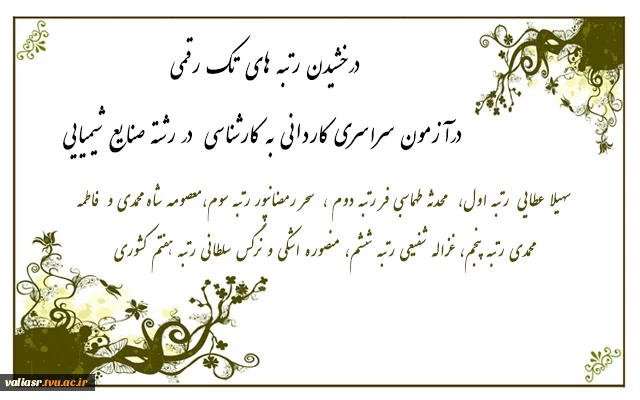 درخشیدن رتبه های تک رقمی
درآزمون سراسری کاردانی به کارشناسی در رشته صنایع شیمیایی
سهیلا عطایی رتبه اول، محدثه طهماسبی فر رتبه دوم ، سحر رمضانپور رتبه سوم،معصومه شاه محمدی و فاطمه
محمدی رتبه پنجم، غزاله شفیعی رتبه ششم، منصوره اشکی و نرگس سلطانی رتبه هفتم کشوری
valiasr.tvu.ac.ir